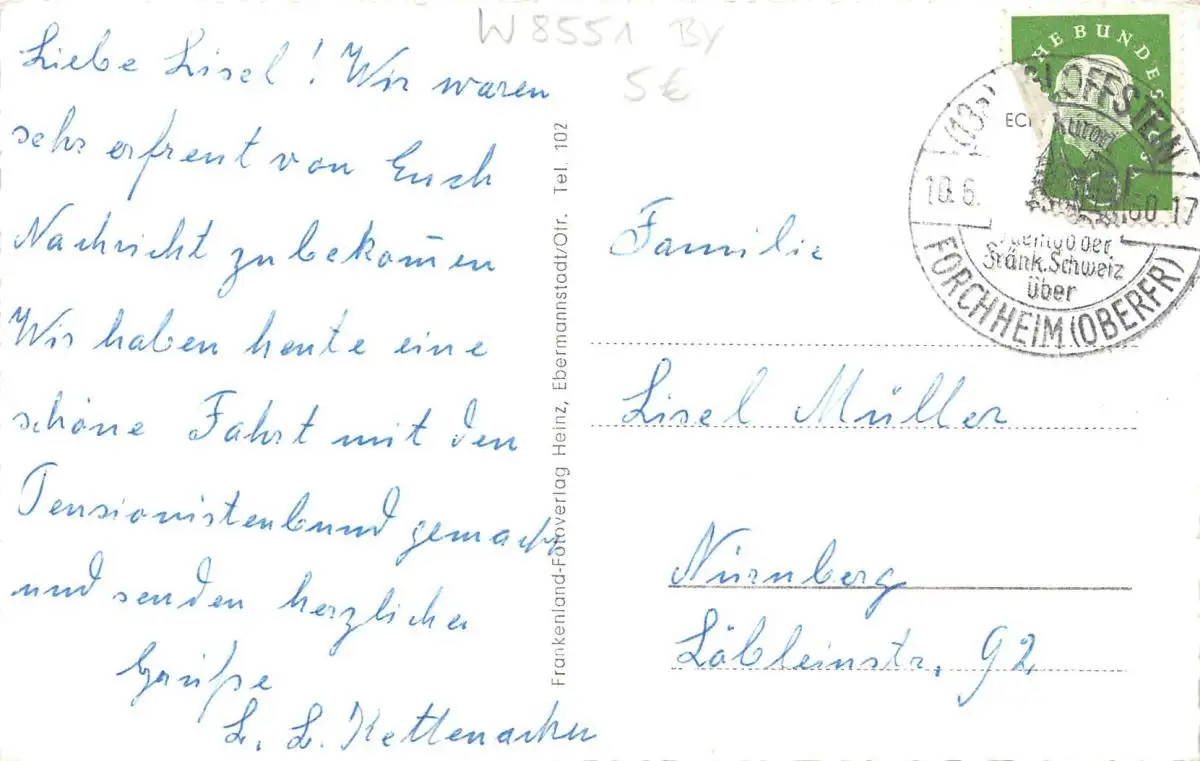 W 8551 BY
5 €
Liebe Lisel! Wir waren
sehr erfreut von Euch
Nachricht zu bekom̄en
Wir haben heute eine
schöne Fahrt mit den
Pensionistenbund gemacht
und senden herzliche
Grüße
L. L. Kettenacker
Frankenland-Fotoverlag Heinz, Ebermannstadt/Ofr. Tel. 102
HE BUNDES
(13a)
OFFSTEIN
Kurort
10.6.
60-17
der
Fränk. Schweiz
über
FORCHHEIM (OBERFR)
Familie
Lisel Müller
Nürnberg
Löbleinstr. 92